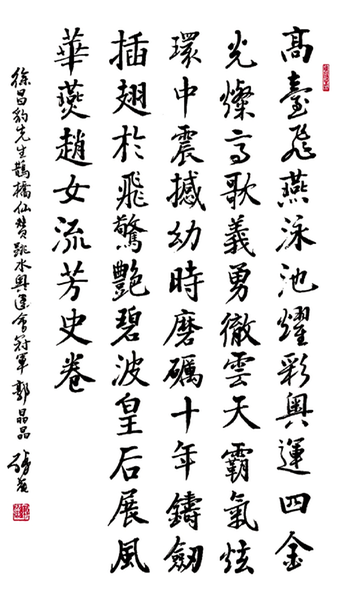 高臺飛燕泳池耀彩奧運四金
光燦高歌義勇徹雲天霸氣炫
環中震撼幼時磨礪十年鑄劍
插翅於飛驚艷碧波皇后展風
華燕趙女流芳史卷
徐昌豹先生鵲橋仙贊跳水奧運會冠軍郭晶晶